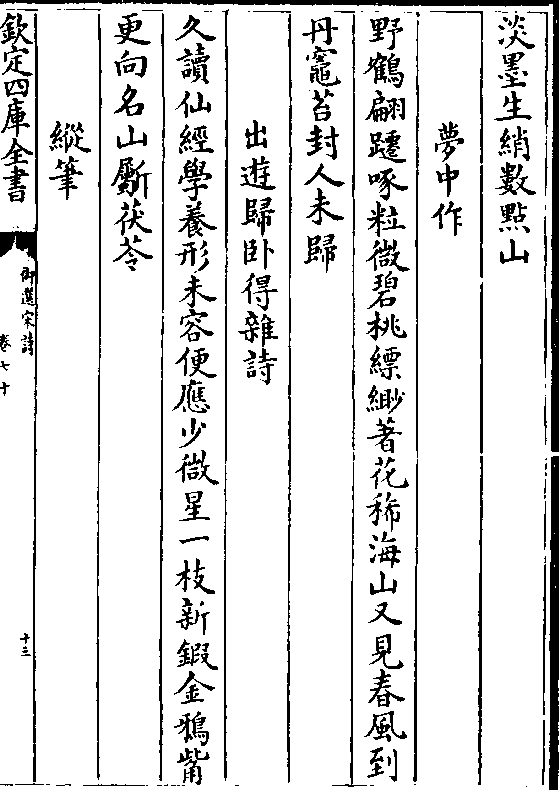 淡墨生綃數點山
夢中作
野鶴翩躚啄粒微碧桃縹緲著花稀海山又見春風到
丹竈苔封人未歸
出遊歸卧得雜詩
久讀仙經學養形未容便應少微星一枝新鍜金鴉觜
更向名山斸茯苓
縱筆
欽定四庫全書
御選宋詩
卷七十
十三